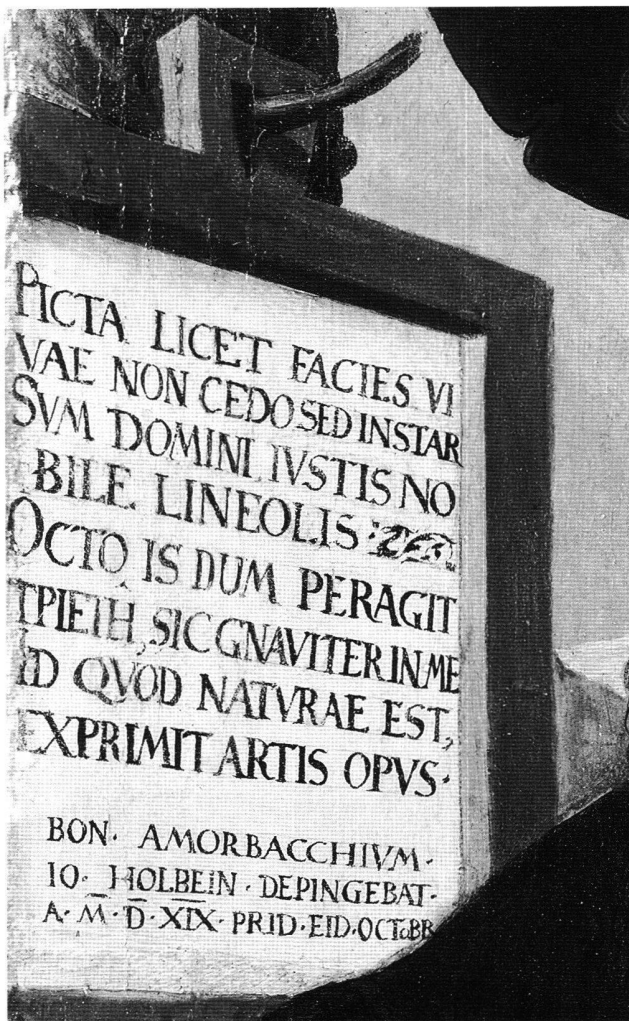 PICTA LICET FACIES VI
VAE NON CEDO SED INSTAR
SVM DOMINI IVSTIS NO
BILE LINEOLIS·
OCTO IS DUM PERAGIT
ΤΡΙΕΤΗ, SIC GNAVITER IN ME
ID QVOD NATVRAE EST,
EXPRIMIT ARTIS OPVS·
BON· AMORBACCHIVM·
IO· HOLBEIN· DEPINGEBAT·
A· M̅· D̅· XIX· PRID· EID· OCTOBR